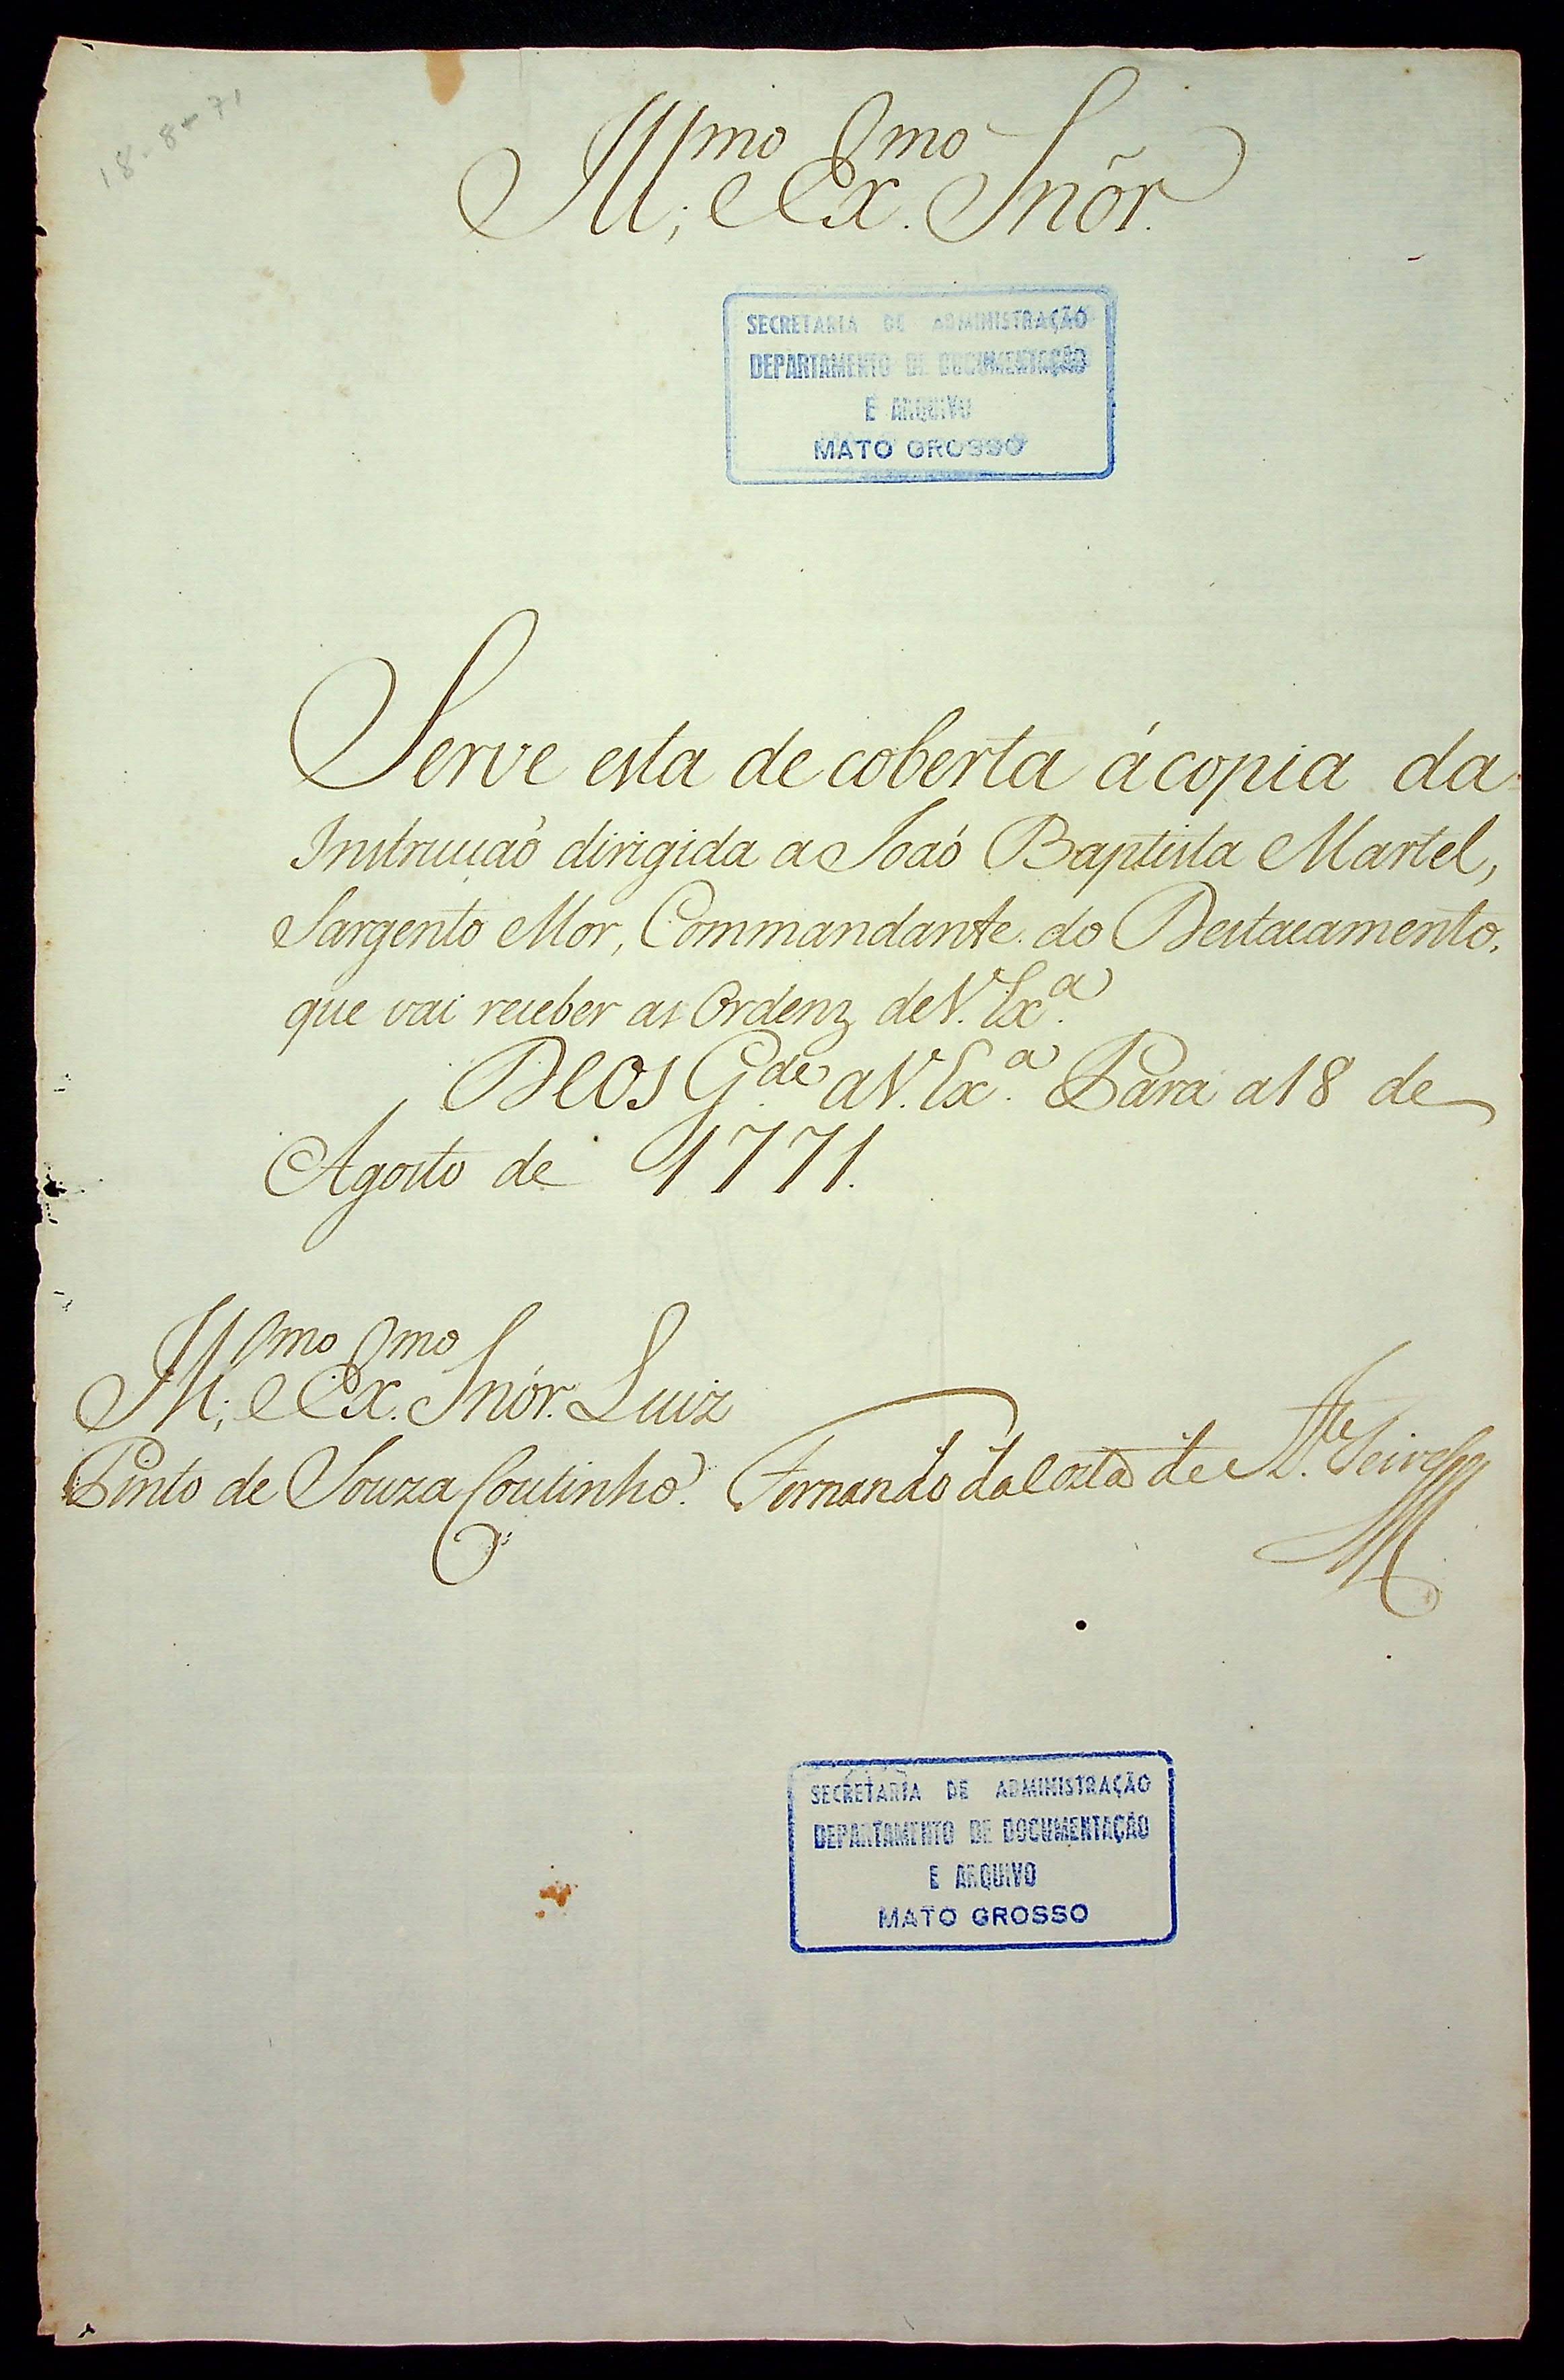 18-8-71
Ill.mo e Ex.mo Snõr.
SECRETARIA DE ADMINISTRAÇÃO
DEPARTAMENTO DE DOCUMENTAÇÃO
E ARQUIVO
MATO GROSSO
Serve esta de coberta á copia da
Instrucçaõ dirigida a Joaõ Baptista Martel,
Sargento Mor, Commandante do Destacamento,
que vai receber as Ordenz de V. Ex.a
DEOS G.de a V. Ex.a Pará a 18 de
Agosto de 1771.
Ill.mo e Ex.mo Snõr. Luiz
Pinto de Souza Coutinho.
Fernando da Costa de At.te Teive
SECRETARIA DE ADMINISTRAÇÃO
DEPARTAMENTO DE DOCUMENTAÇÃO
E ARQUIVO
MATO GROSSO